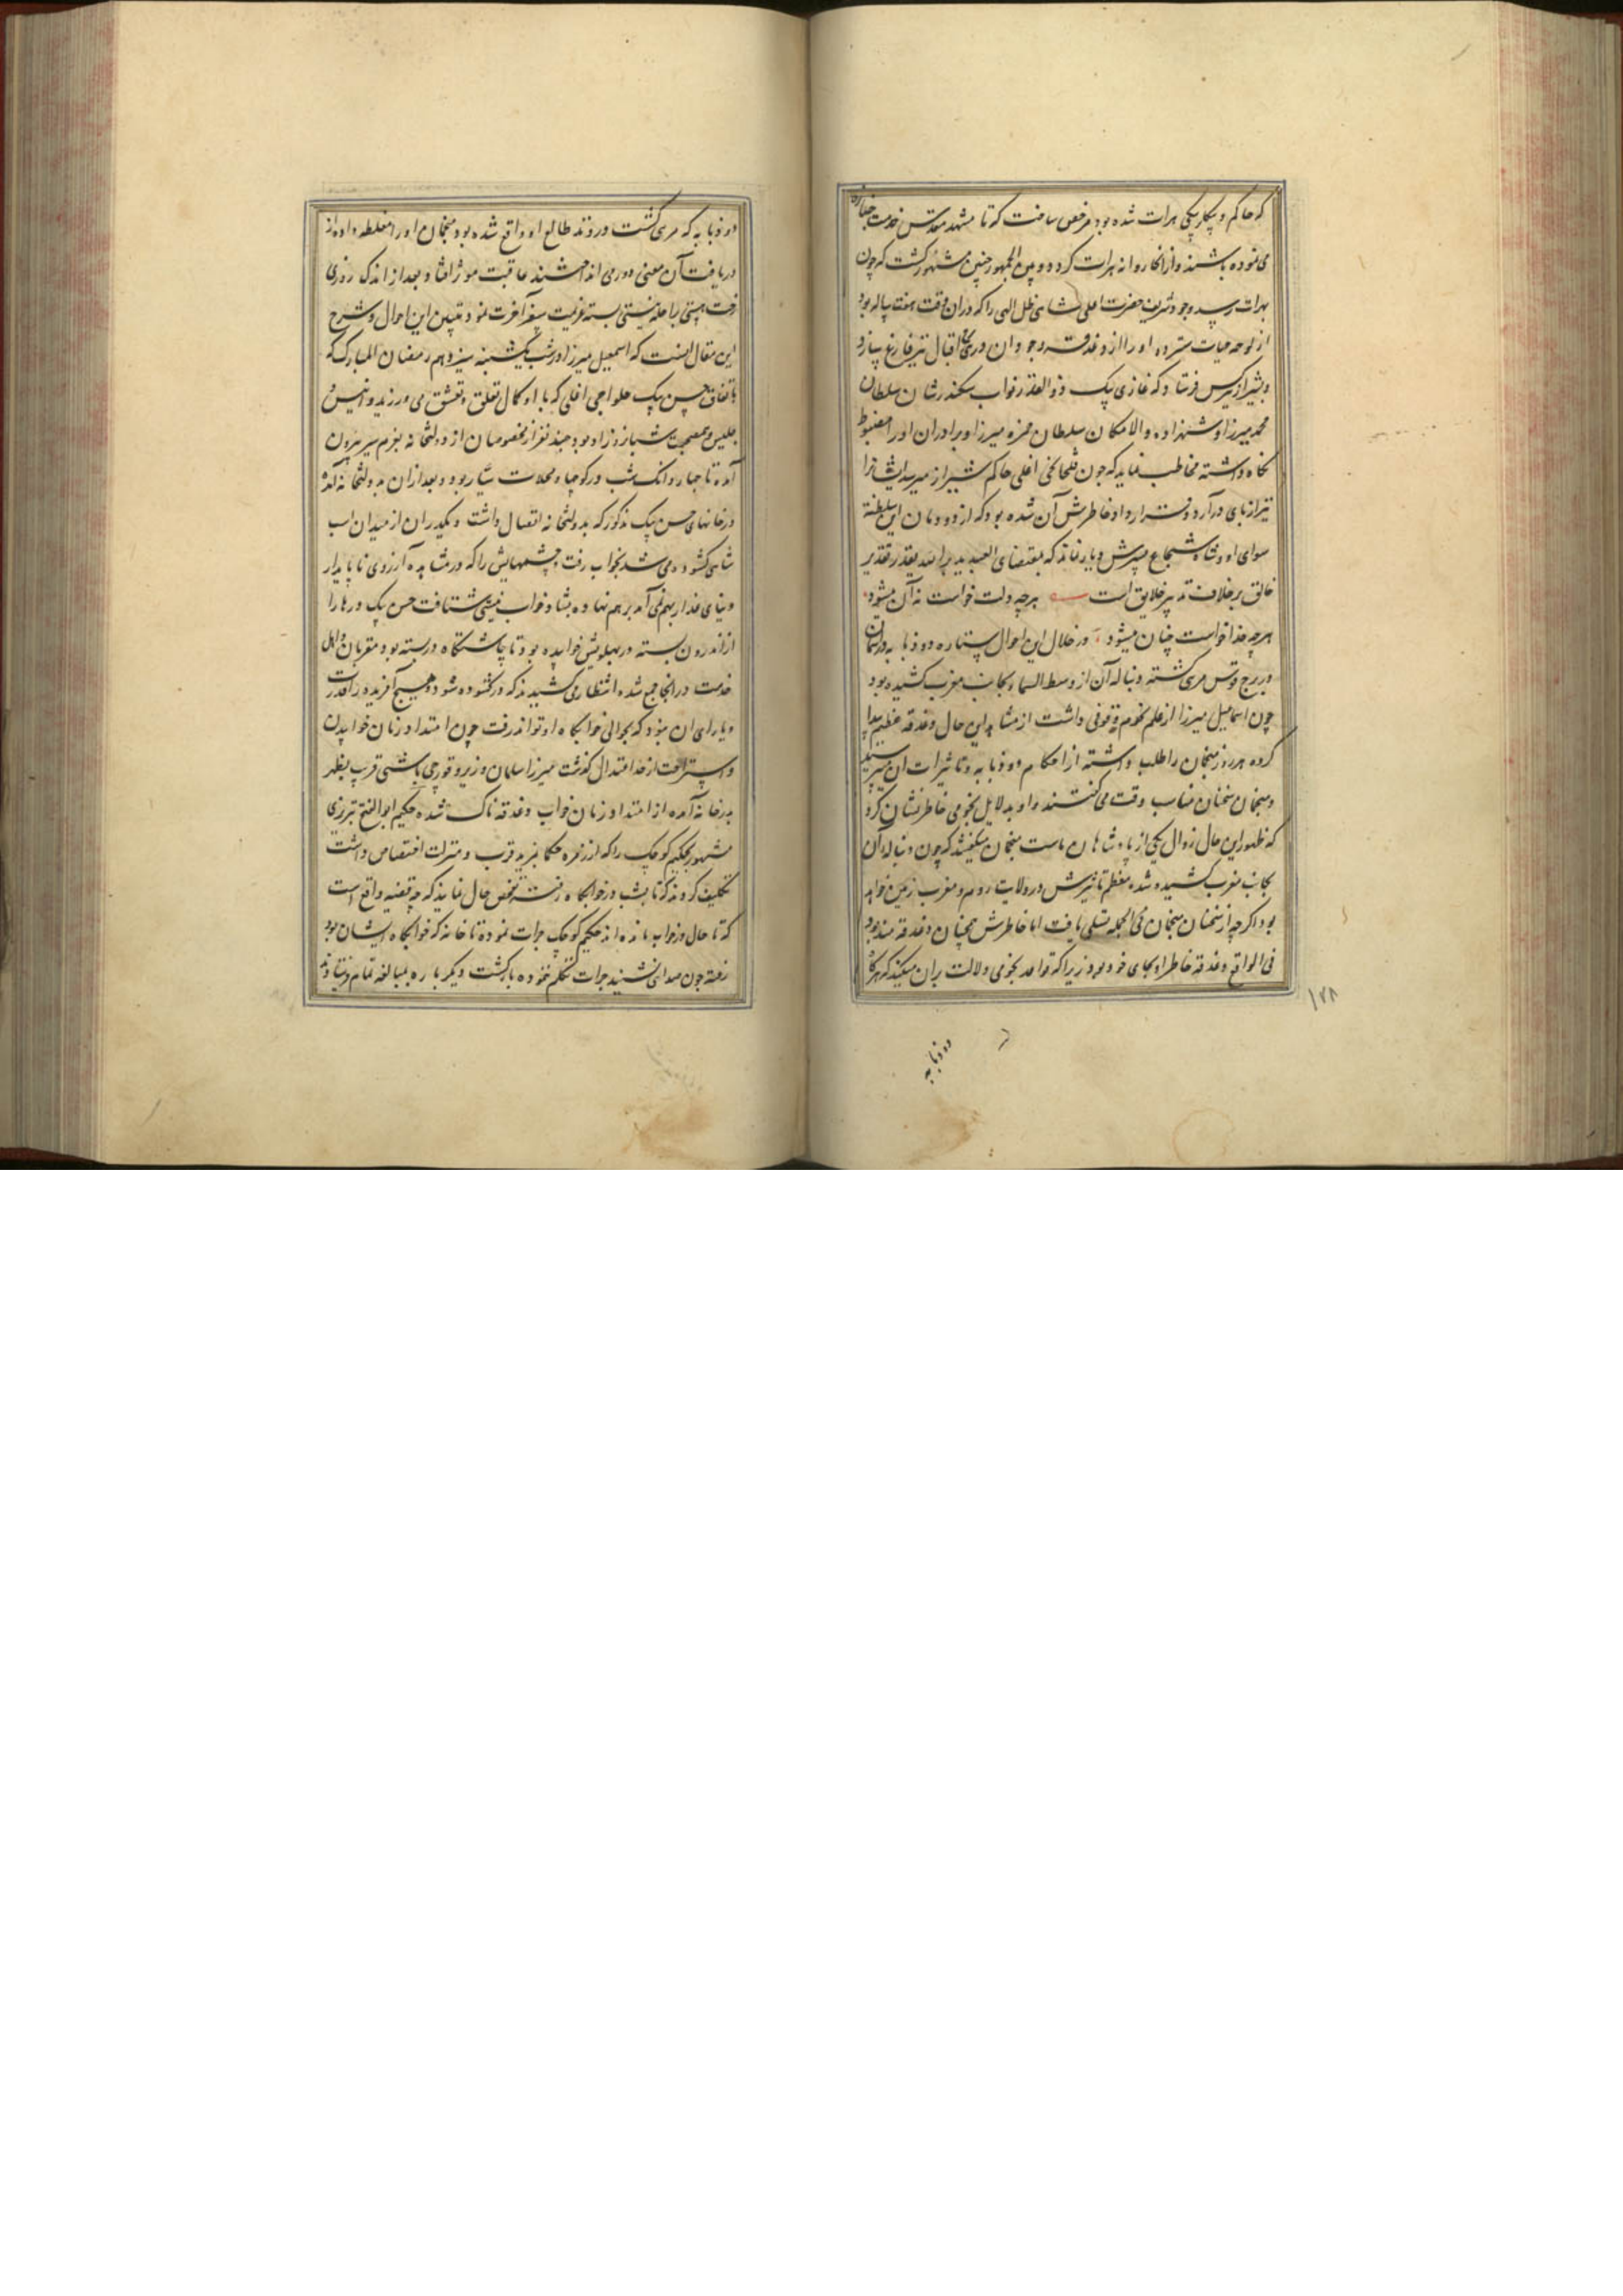 که حاکم و بیکلربیکی هرات شده بود مرخص ساخت که تا مشهد مقدس خدمت جنازه
می نموده باشند و از آنجا روانه هرات کردد و بین الجمهور چنین مشهور کشت که چون
بهرات رسید وجود شریف حضرت اعلی شاهی ظل الهی را که در ان وقت هفت ساله بود
از لوحه حیات سترده او را از دغدغه وجود ان دری اقبال نیز فارغ سازد
و بشیراز نیز کس فرستاد که غازی بیک ذوالقدر نواب سکندر شان سلطان
محمد میرزا و شهزاده والا مکان سلطان حمزه میرزا و برادران او را مضبوط
نکاه داشته مخاطب نماید که چون خلی افغلی حاکم شیراز میرسد ایشانرا
نیز از پای در آرد و قرار داد خاطرش آن شده بود که از دودمان این سلطنة
سوای او و شاه شجاع پسرش دیار نماند که بمقتضای العبد یدبر و الله یقدر تقدیر
خالق بر خلاف تدبیر خلایق است هر چه دلت خواست نه آن میشود
هر چه خدا خواست چنان میشود در خلال این احوال ستاره ذو ذوابه در آسمان
در برج قوس مرئی کشته دنباله آن از وسط السماء بجانب مغرب کشیده بود
چون اسماعیل میرزا از علم نجوم وقوفی داشت از مشاهده این حال دغدغه عظیم پیدا
کرده هر روز منجمان را طلب داشته از احکام ذو ذوابه و تاثیرات ان میپرسید
و منجمان سخنان مناسب وقت می کفتند و او بدلایل نجومی خاطر نشان کرد
که ظهور این حال زوال یکی از پادشاهان ماست منجمان میکفتند که چون دنباله آن
بجانب مغرب کشیده شده معظم تاثیرش در ولایت روم و مغرب زمین خواهد
بود اکرچه از سخنان منجمان فی الجمله تسلی یافت اما خاطرش همچنان دغدغه مند بود
فی الواقع دغدغه خاطر او بجای خود بود زیرا که قواعد نجومی دلالت بر ان میکند که هرگاه
ذو ذوابه
۱۲۸
ذو ذوابه که مرئی کشت در وتد طالع او واقع شده بود منجمان او را مغلطه داده از
دریافت آن معنی دور می انداختند عاقبت موثر افتاد و بعد از اندک روزی
رخت هستی براحله نیستی بسته عزیمت سفر آخرت نمود تبیین این احوال و شرح
این مقال انست که اسمعیل میرزا در شب یکشنبه سیزدهم رمضان المبارک که
باتفاق حسن بیک حلواجی اغلی که با او کمال تعلق و تعشق می ورزید و انیس و
جلیس و همصحبت شبانروز او بود با چند نفر از مخصوصان از دولتخانه بعزم سیر بیرون
آمده تا چهار دانک شب در کوچها و محلات سیار بود و بعد از ان بدولتخانه آمد
در خانهای حسن بیک مذکور که بدولتخانه اتصال داشت و یکدر ان از میدان اسب
شاهی کشوده می شد بخواب رفت چشمهایش را که در مشاهده آرزوی ناپایدار
دنیای غدار بهم نمی آمد بر هم نهاده بشاد خواب نیستی شتافت حسن بیک درها را
از اندرون بسته در پهلویش خوابیده بود تا چاشتکاه در بسته بود مقربان و اهل
خدمت در آنجا جمع شده انتظار می کشیدند که در کشوده شود و هیچ آفریده را قدرت
و یارای ان نبود که بحوالی خوابکاه او تواند رفت چون امتداد زمان خوابیدن
و استراحت از حد اعتدال کذشت میرزا سلمان وزیر و قورچی باشی قریب بظهر
بدر خانه آمده از امتداد زمان خواب دغدغه ناک شده حکیم ابو الفتح تبریزی
مشهور بحکیم کوچک را که از زمره حکما بمزید قرب و منزلت اختصاص داشت
تکلیف کردند که تا پشت در خوابکاه رفته تفحص حال نماید که چه قضیه واقع است
که تا حال در خواب مانده اند حکیم کوچک جرات نموده تا خانه که خوابکاه ایشان بود
رفته چون صدائی نشنید جرات تکلم ننموده بازکشت دیکر باره بمبالغه تمام فرستادند